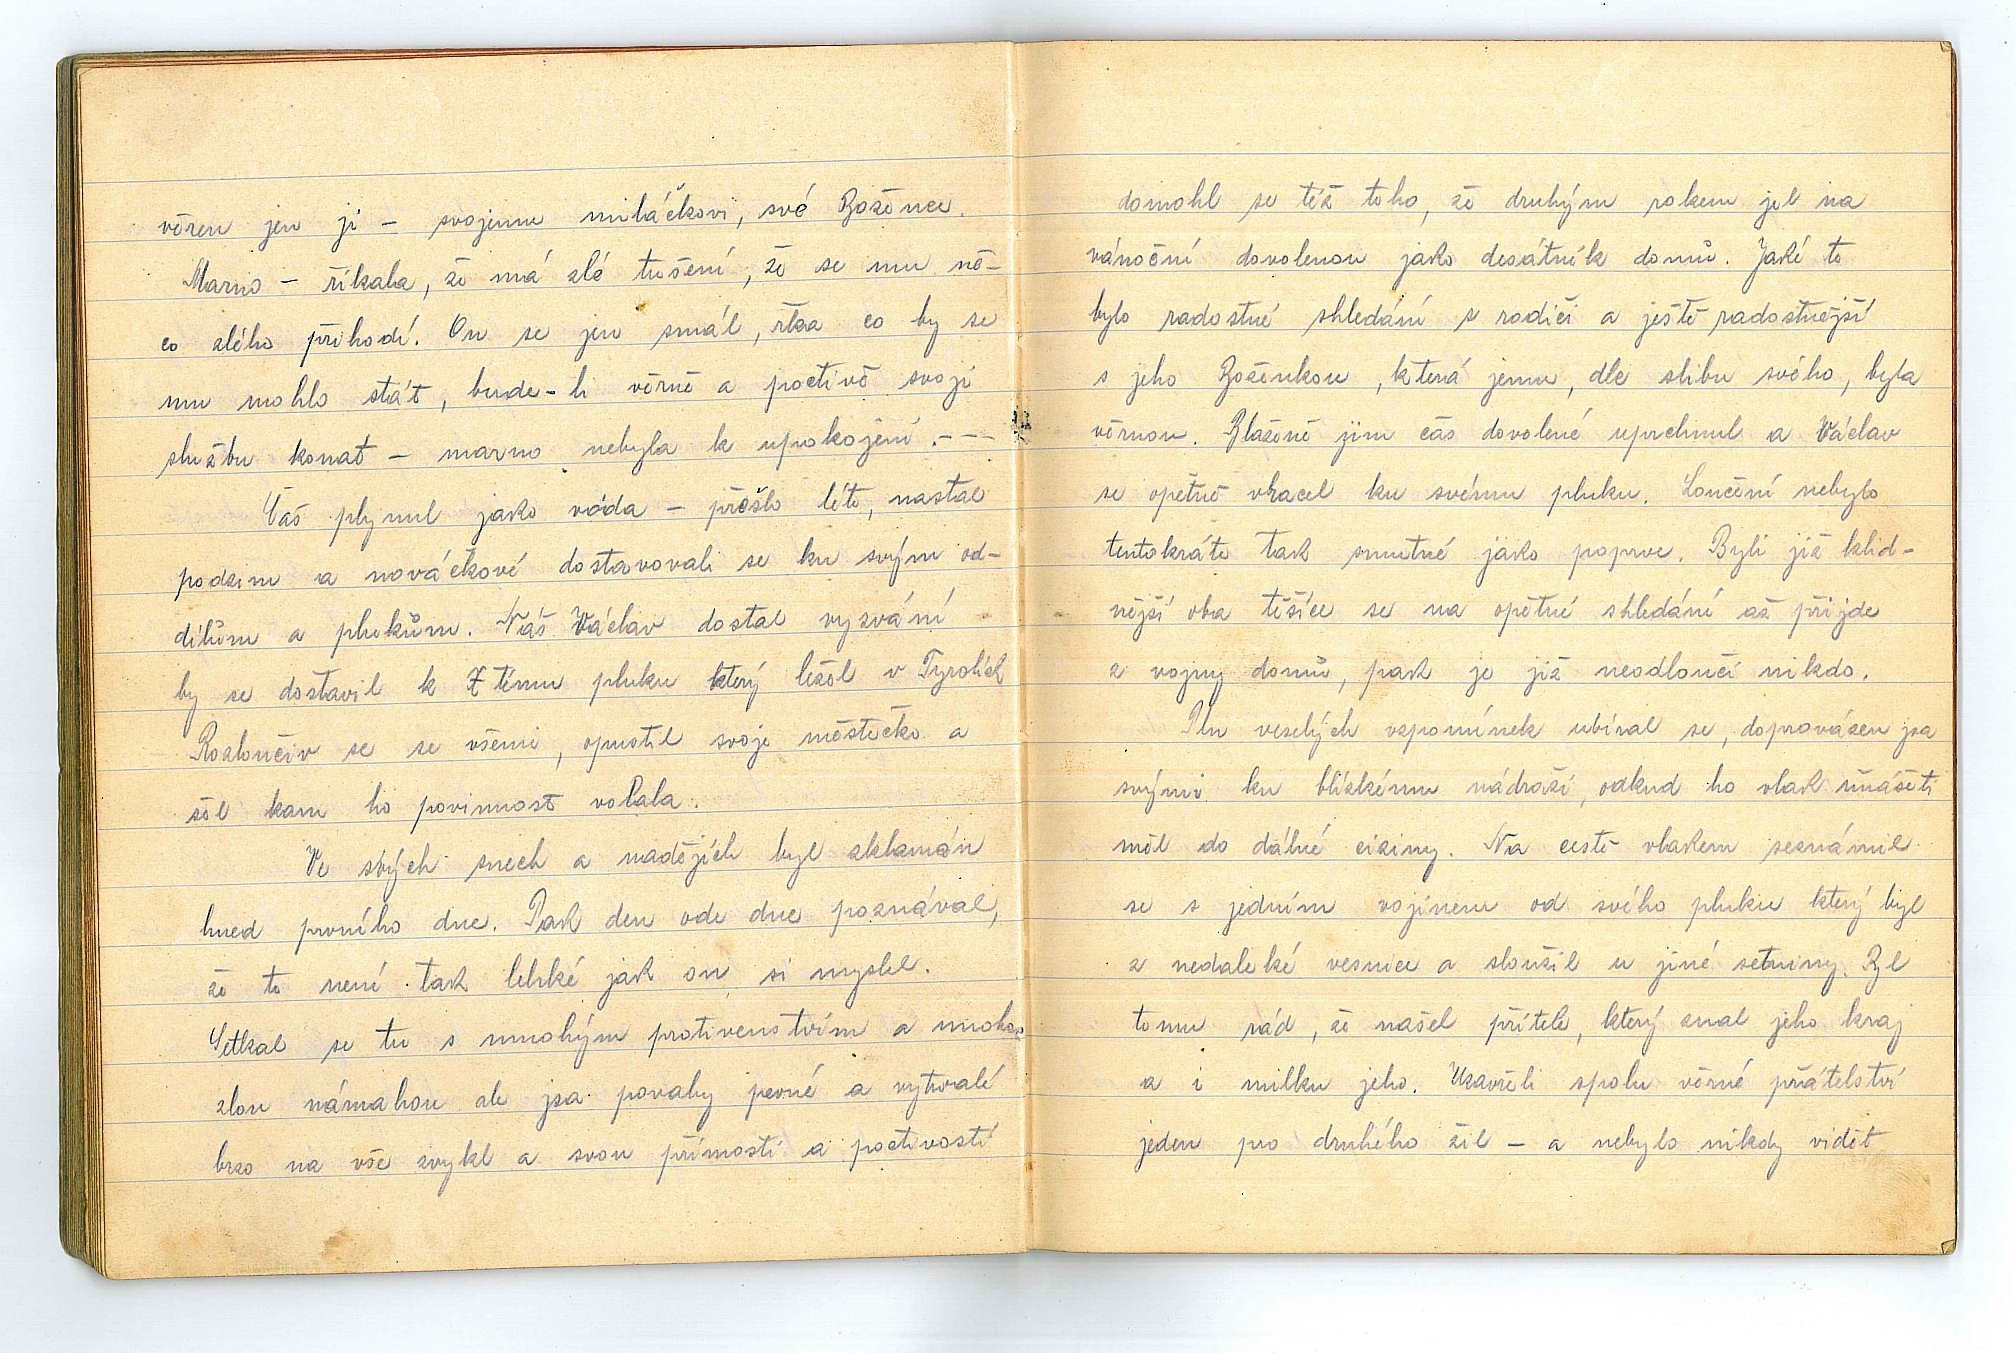 věren jen ji – svojemu miláčkovi, své Božence.
Marno – říkala, že má zlé tušení, že se mu ně-
co zlého přihodí. On se jen smál, řka co by se
mu mohlo stát, bude-li věrně a poctivě svoji
službu konat – marno nebyla k upokojení. – – –
Čas plynul jako voda – přešlo léto, nastal
podzim a nováčkové dostavovali se ku svým od-
dílům a plukům. Náš Václav dostal vyzvání
by se dostavil k 7 tému pluku který ležel v Tyrolích
Rozloučiv se se všemi, opustil svoje městečko a
šel kam ho povinnost volala.
Ve svých snech a nadějích byl zklamán
hned prvního dne. Pak den ode dne poznával,
že to není tak lehké jak on si myslel.
Setkal se tu s mnohým protivenstvím a mnoho
zlou námahou ale jsa povahy pevné a vytrvalé
brzo na vše zvykl a svou přímostí a poctivostí
domohl se též toho, že druhým rokem jel na
vánoční dovolenou jako desátník domů. Jaké to
bylo radostné shledání s rodiči a ještě radostnější
s jeho Boženkou, která jemu, dle slibu svého, byla
věrnou. Blaženě jim čas dovolené uprchnul a Václav
se opětně vracel ku svému pluku. Loučení nebylo
tentokráte tak smutné jako poprve. Byli již klid-
nější oba těšíce se na opětné shledání až přijde
z vojny domů, pak je již neodloučí nikdo.
Pln veselých vzpomínek ubíral se, doprovázen jsa
svými ku blízkému nádraží, odkud ho vlak unášeti
měl do dálné ciziny. Na cestě vlakem seznámil
se s jedním vojínem od svého pluku který byl
z nedaleké vesnice a sloužil u jiné setniny. Byl
tomu rád, že našel přítele, který znal jeho kraj
a i milku jeho. Uzavřeli spolu věrné přátelství
jeden pro druhého žil – a nebylo nikdy vidět